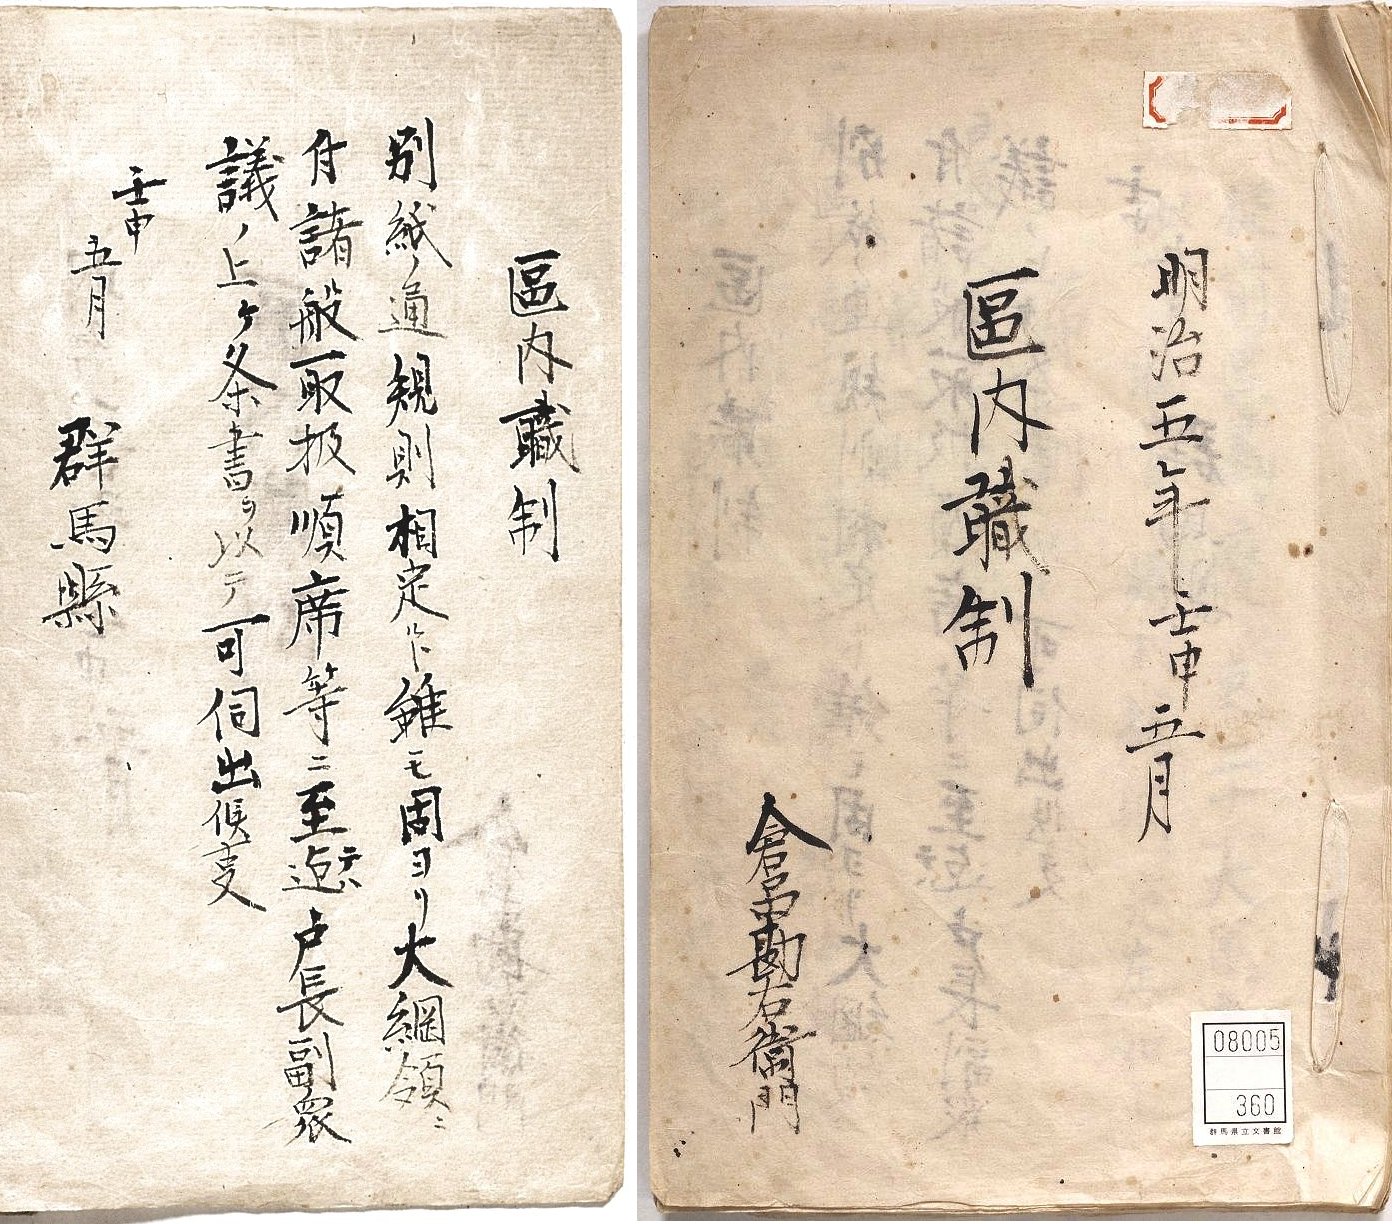 明治五年壬申五月
區内職制
倉常勘右衛門
08005
360
群馬県立文書館
區内職制
別紙ノ通規則相定候ト雖モ固ヨリ大綱領ニ
付諸般取扱順席等ニ至迠テハ戸長副衆
議ノ上ヶ条書ヲ以テ可伺出候事
壬申
五月
群馬縣